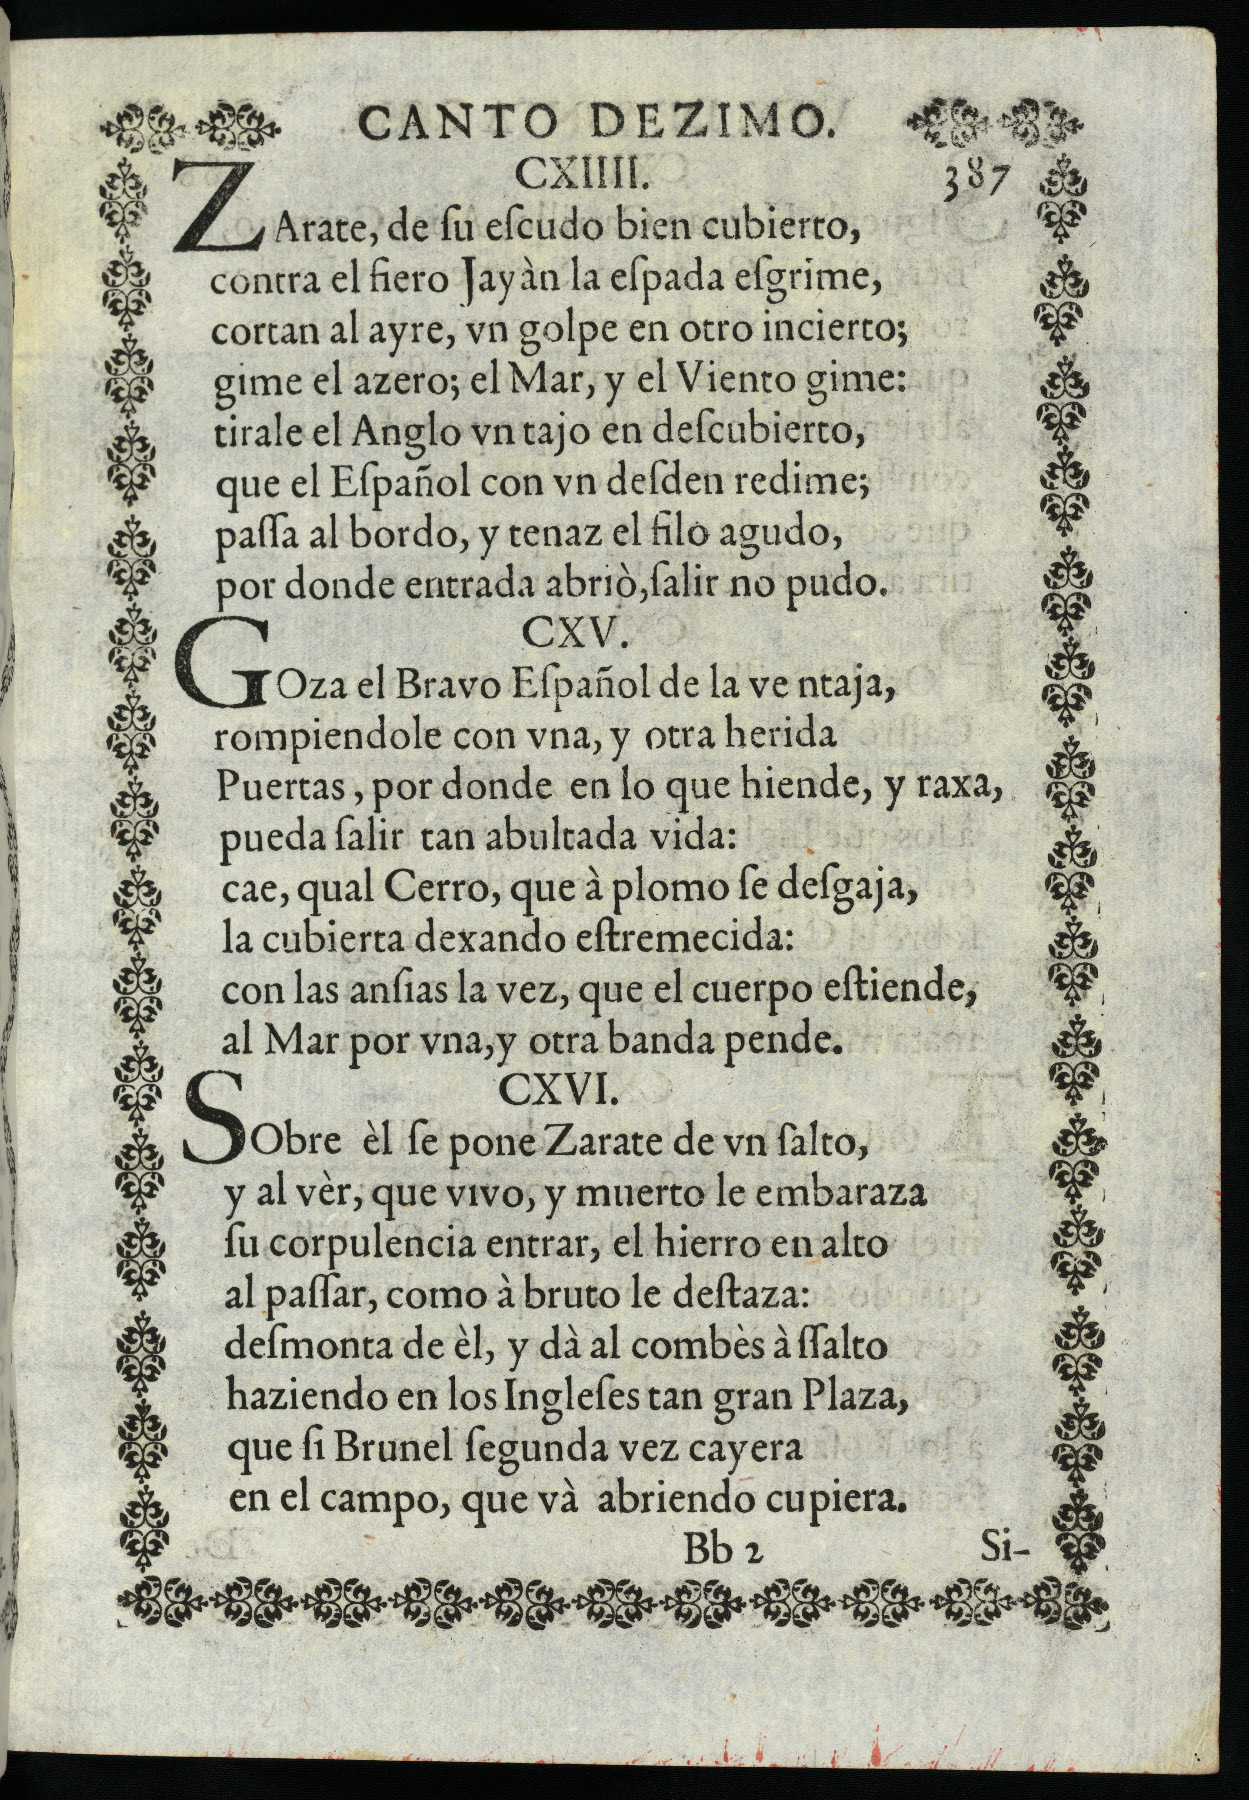 CANTO DEZIMO.
CXIIII.
387
ZArate, de ſu eſcudo bien cubierto,
contra el fiero Jayàn la eſpada eſgrime,
cortan al ayre, vn golpe en otro incierto;
gime el azero; el Mar, y el Viento gime:
tirale el Anglo vn tajo en deſcubierto,
que el Eſpañol con vn deſden redime;
paſſa al bordo, y tenaz el filo agudo,
por donde entrada abriò,ſalir no pudo.
CXV.
GOza el Bravo Eſpañol de la ve ntaja,
rompiendole con vna, y otra herida
Puertas, por donde en lo que hiende, y raxa,
pueda ſalir tan abultada vida:
cae, qual Cerro, que à plomo ſe deſgaja,
la cubierta dexando eſtremecida:
con las anſias la vez, que el cuerpo eſtiende,
al Mar por vna,y otra banda pende.
CXVI.
SObre èl ſe pone Zarate de vn ſalto,
y al vèr, que vivo, y muerto le embaraza
ſu corpulencia entrar, el hierro en alto
al paſſar, como à bruto le deſtaza:
deſmonta de èl, y dà al combès àſſalto
haziendo en los Ingleſes tan gran Plaza,
que ſi Brunel ſegunda vez cayera
en el campo, que và abriendo cupiera.
Bb 2
Si-